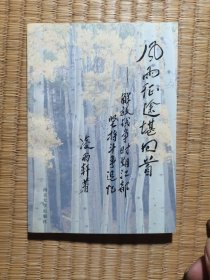 风雨征途堪回首
——解放战争时期江都
坚持斗争追忆
凌雨轩著